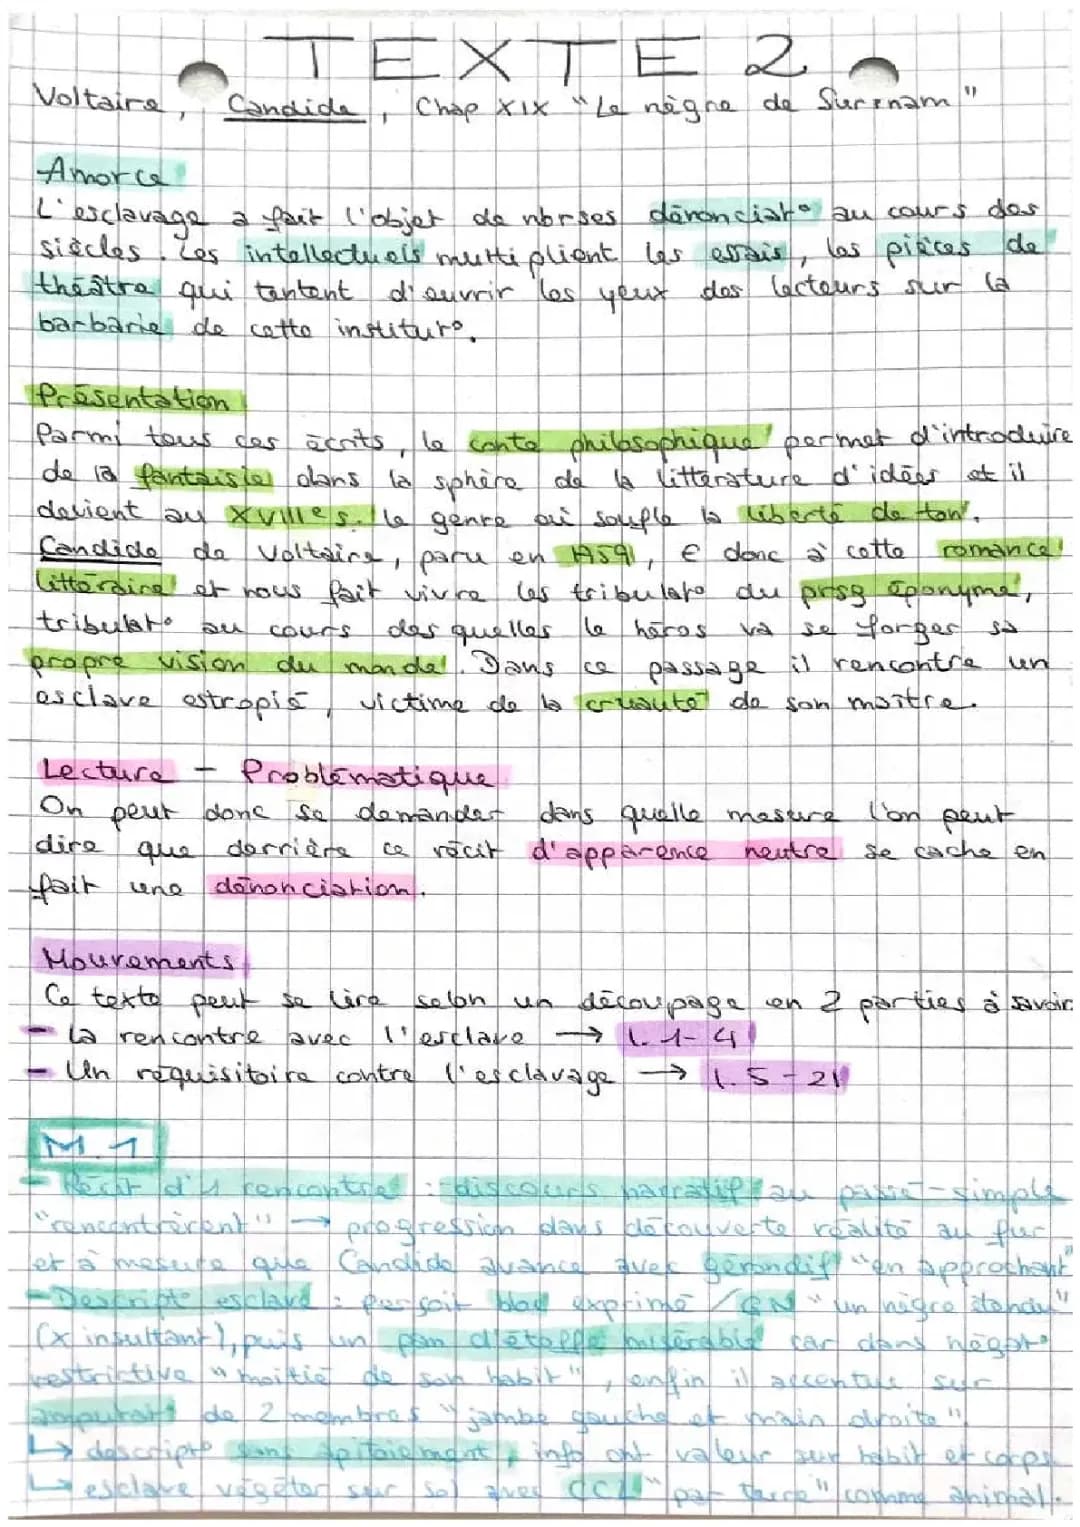 TEXTE 2
Voltaire, Candide, Chap XIX "Le nègre de Surinam"
Amorce
L'esclavage a fait l'objet de nbrses dénonciat° au cours des
siècles. Les intellectuels multiplient les essais, les pièces de
théâtre qui tentent d'ouvrir les yeux des lecteurs sur la
barbarie de cette institut°.
Présentation
Parmi tous ces écrits, le conte philosophique permet d'introduire
de la fantaisie dans la sphère de la littérature d'idées et il
devient au XVIIIe s. le genre où souple la liberté de ton.
Candide de Voltaire, paru en 1759, € donc à cette romance
littéraire et nous fait vivre les tribulat° du prsg éponyme,
tribulat° au cours des quelles le héros va se forger sa
propre vision du monde. Dans ce passage il rencontre un
esclave estropié, victime de la cruauté de son maître.
Lecture - Problématique
On peut donc se demander dans quelle mesure l'on peut
dire que derrière ce récit d'apparence neutre se cache en
fait une dénonciation.
Mouvements
Ce texte peut se lire selon un découpage en 2 parties à savoir
- la rencontre avec l'esclave → l. 1-4
- Un réquisitoire contre l'esclavage → l. 5-21
M.1
- Récit d'1 rencontre : discours narratif au passé-simple
"rencontrèrent" → progression dans découverte réalité au fur
et à mesure que Candide avance avec gérondif "en approchant"
- Descript° esclave : perçoit exprimé / GN "un nègre étendu"
(x insultant), puis un pan d'étoffe misérable car dans négat°
restrictive "moitié de son habit", enfin il accentue sur
amputat° de 2 membres "jambe gauche et main droite"
↳ descript° sans apitoiement, info ont valeur sur habit et corps
↳ esclave végéter sur sol avec CCL "par terre" comme animal.